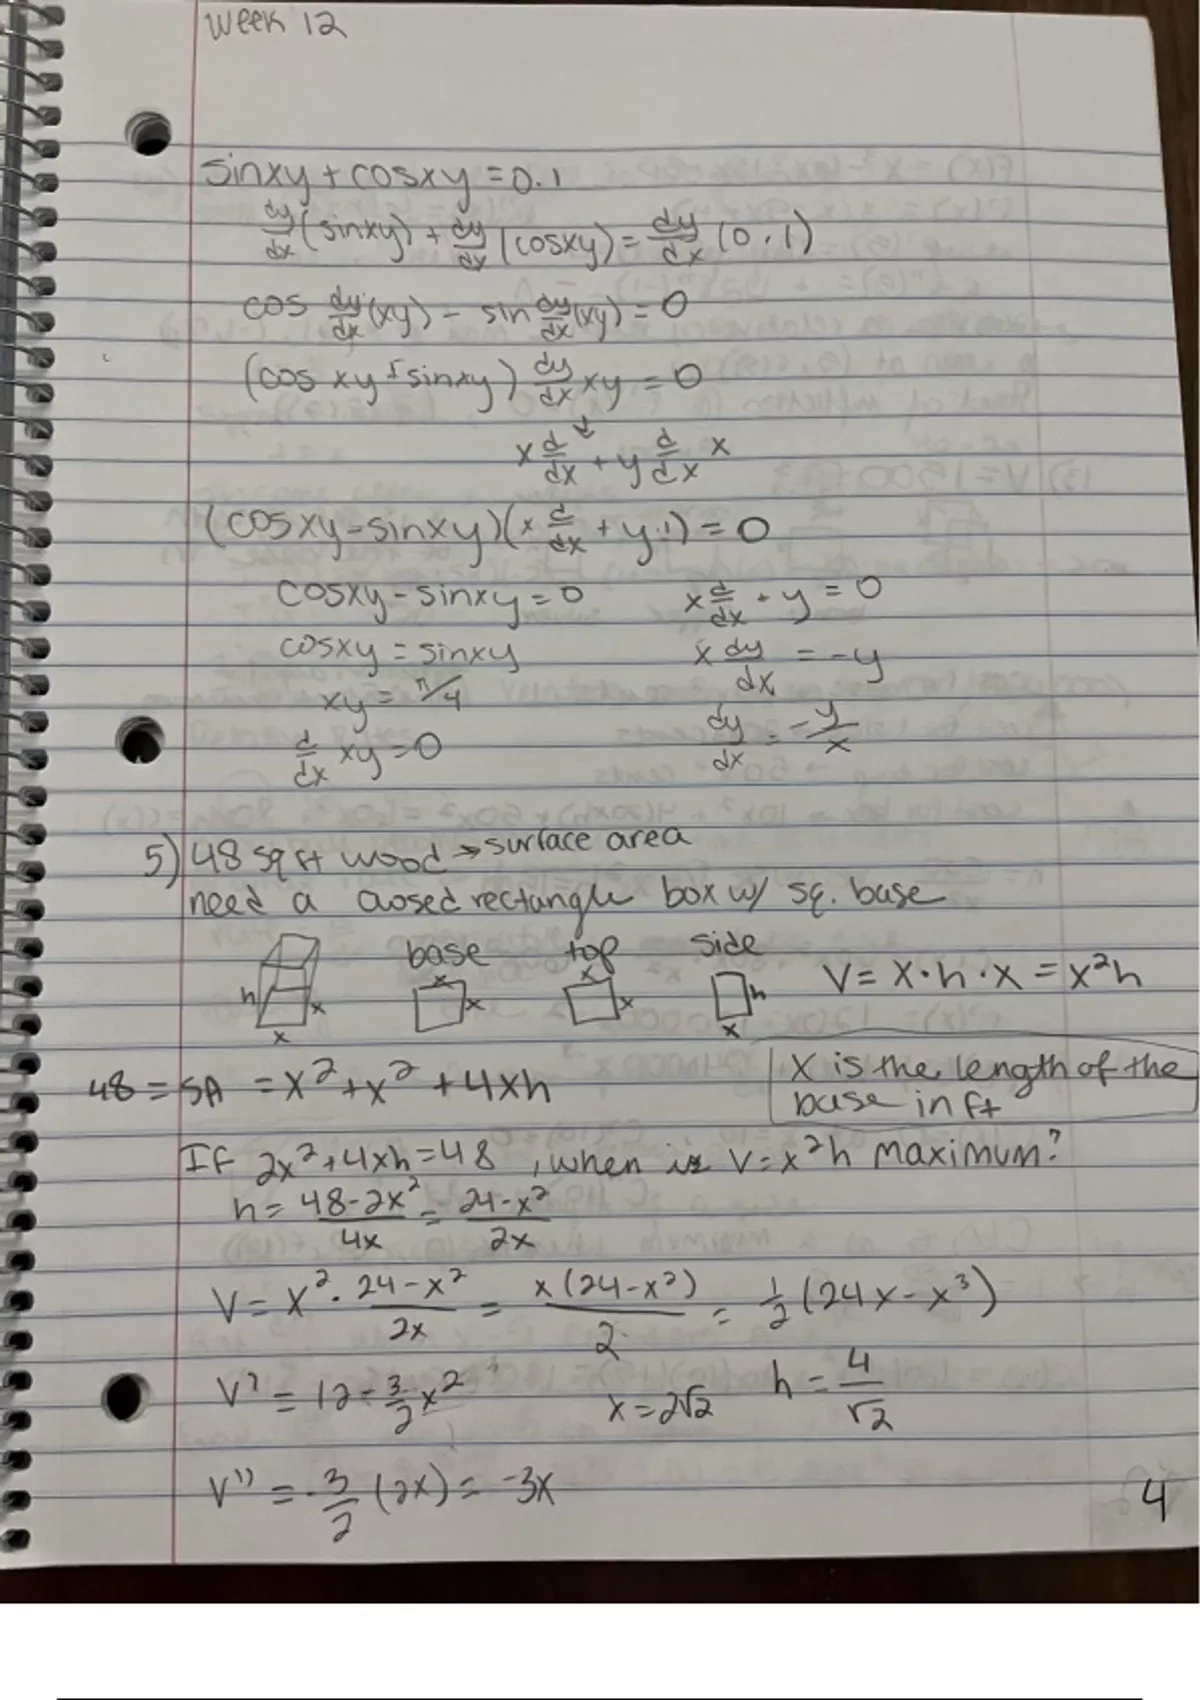 week 12
sinxy + cosxy = 0.1
dy/dx (sinxy) + dy/dx (cosxy) = dy/dx (0.1)
cos dy/dx (xy) - sin dy/dx (xy) = 0
(cos xy - sinxy) dy/dx xy = 0
x d/dx + y d/dx x
(cosxy - sinxy)(x d/dx + y·1) = 0
cosxy - sinxy = 0    x d/dx + y = 0
cosxy = sinxy    x dy/dx = -y
xy = π/4    dy/dx = -y/x
d/dx xy = 0
5) 48 sq ft wood → surface area
need a closed rectangle box w/ sq. base
base top side
h x x
x x
x x
h x
V = x·h·x = x²h
48 = SA = x² + x² + 4xh
X is the length of the
base in ft
If 2x² + 4xh = 48, when is V = x²h maximum?
h = 48-2x²/4x = 24-x²/2x
V = x² · 24-x²/2x = x(24-x²)/2 = 1/2 (24x - x³)
V' = 12 - 3/2 x²    x = 2√2    h = 4/√2
V'' = -3/2 (2x) = -3x
4